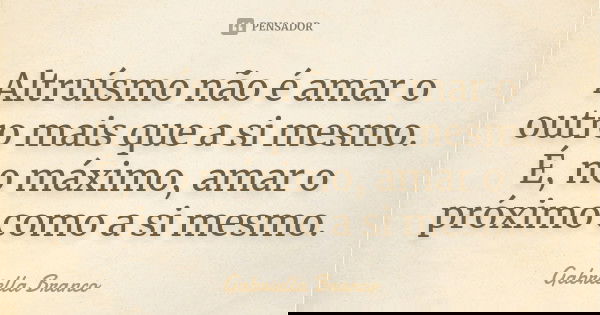 PENSADOR
Altruísmo não é amar o
outro mais que a si mesmo.
É, no máximo, amar o
próximo como a si mesmo.
Gabriella Branco